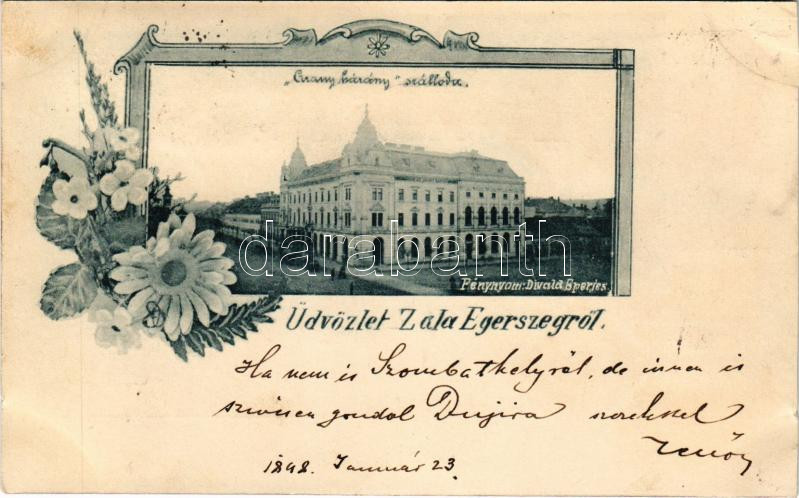 „Arany bárány" szálloda.
darabanth
Fénynyom: Divald Eperjes.
Üdvözlet Zala Egerszegről.
Ha nem is Szombathelyről, de innen is
szivesen gondol Dujira szeretettel
Jenőn
1898. Január 23.